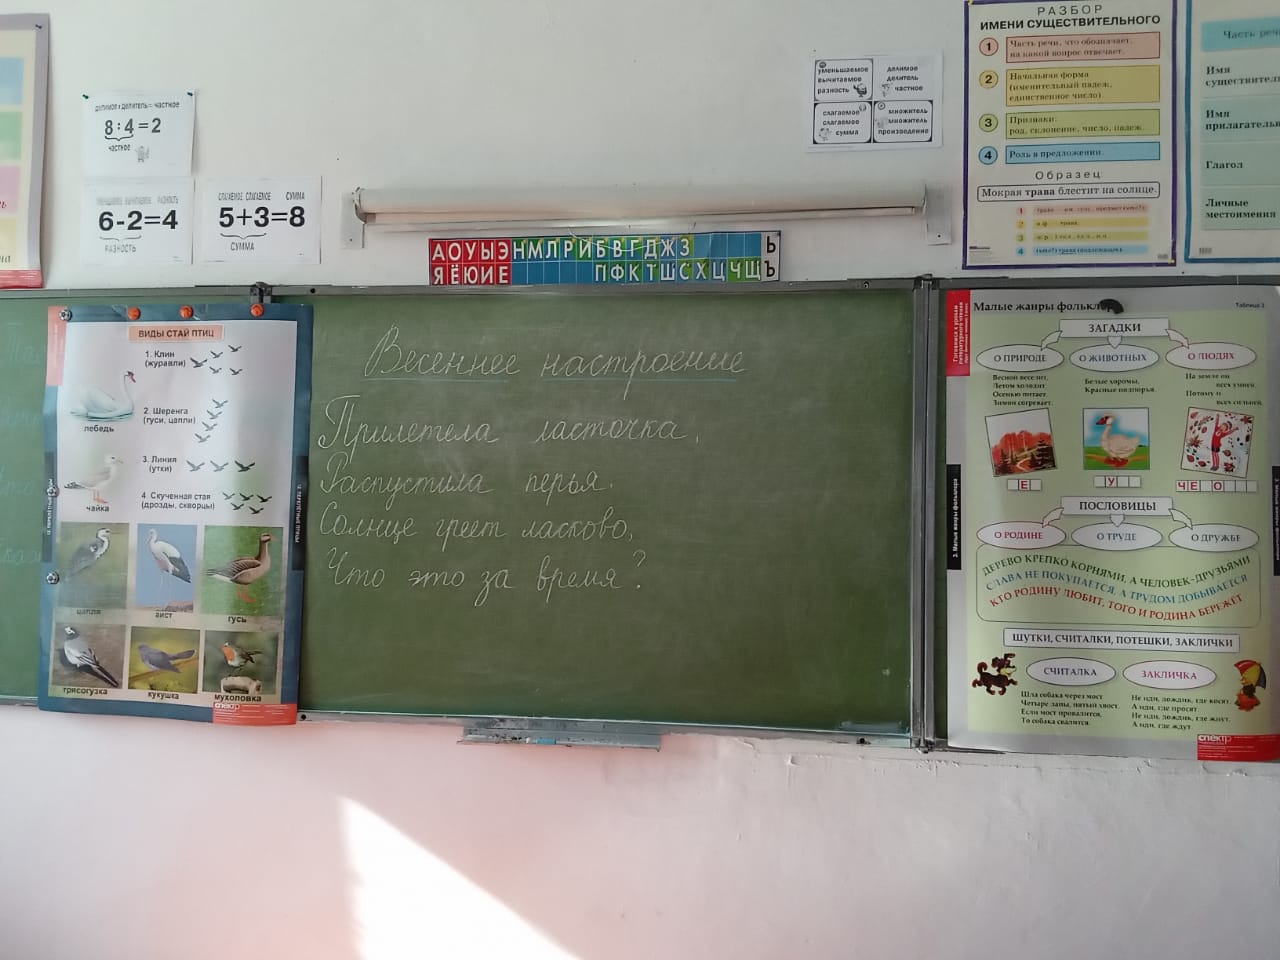 делимое : делитель = частное
8:4=2
частное
уменьшаемое вычитаемое разность
6-2=4
РАЗНОСТЬ
СЛАГАЕМОЕ СЛАГАЕМОЕ СУММА
5+3=8
СУММА
уменьшаемое
вычитаемое
разность
делимое
делитель
частное
слагаемое
слагаемое
сумма
множитель
множитель
произведение
РАЗБОР
ИМЕНИ СУЩЕСТВИТЕЛЬНОГО
1 Часть речи, что обозначает,
на какой вопрос отвечает.
2 Начальная форма
(именительный падеж,
единственное число).
3 Признаки:
род, склонение, число, падеж.
4 Роль в предложении.
Образец
Мокрая трава блестит на солнце.
1
2
3
4
Часть речи
Имя
Имя
Глагол
Личные
местоимения
АОУЫЭНМЛРЙБВГДЖЗ Ь
ЯЁЮИЕ ПФКТШСХЦЧЩЪ
ВИДЫ СТАЙ ПТИЦ
1. Клин
(журавли)
лебедь
2. Шеренга
(гуси, цапли)
3. Линия
(утки)
чайка
4. Скученная стая
(дрозды, скворцы)
цапля
аист
гусь
трясогузка
кукушка
мухоловка
спектр
Весеннее настроение
Прилетела ласточка,
Распустила перья.
Солнце греет ласково,
Что это за время?
Малые жанры
Таблица 3
ЗАГАДКИ
О ПРИРОДЕ
О ЖИВОТНЫХ
О ЛЮДЯХ
Весной веселит,
Летом холодит,
Осенью питает,
Зимой согревает.
Белые хоромы,
Красные подпорья.
На земле он
всех умней,
Потому и
всех сильней.
Е
У
Ч Е О
ПОСЛОВИЦЫ
О РОДИНЕ
О ТРУДЕ
О ДРУЖБЕ
ДЕРЕВО КРЕПКО КОРНЯМИ, А ЧЕЛОВЕК-ДРУЗЬЯМИ
СЛАВА НЕ ПОКУПАЕТСЯ, А ТРУДОМ ДОБЫВАЕТСЯ
КТО РОДИНУ ЛЮБИТ, ТОГО И РОДИНА БЕРЕЖЕТ
ШУТКИ, СЧИТАЛКИ, ПОТЕШКИ, ЗАКЛИЧКИ
СЧИТАЛКА
ЗАКЛИЧКА
Шла собака через мост
Четыре лапы, пятый хвост.
Если мост провалится,
То собака свалится.
Не иди, дождик, где косят,
А иди, где просят
Не иди, дождик, где жнут,
А иди, где ждут
3. Малые жанры фольклора
спектр